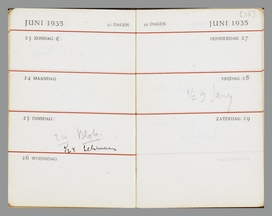 JUNI 1935 30 DAGEN
23 ZONDAG
24 MAANDAG
25 DINSDAG
26 WOENSDAG
30 DAGEN JUNI 1935
DONDERDAG 27
VRIJDAG 28
½ 9
ZATERDAG 29